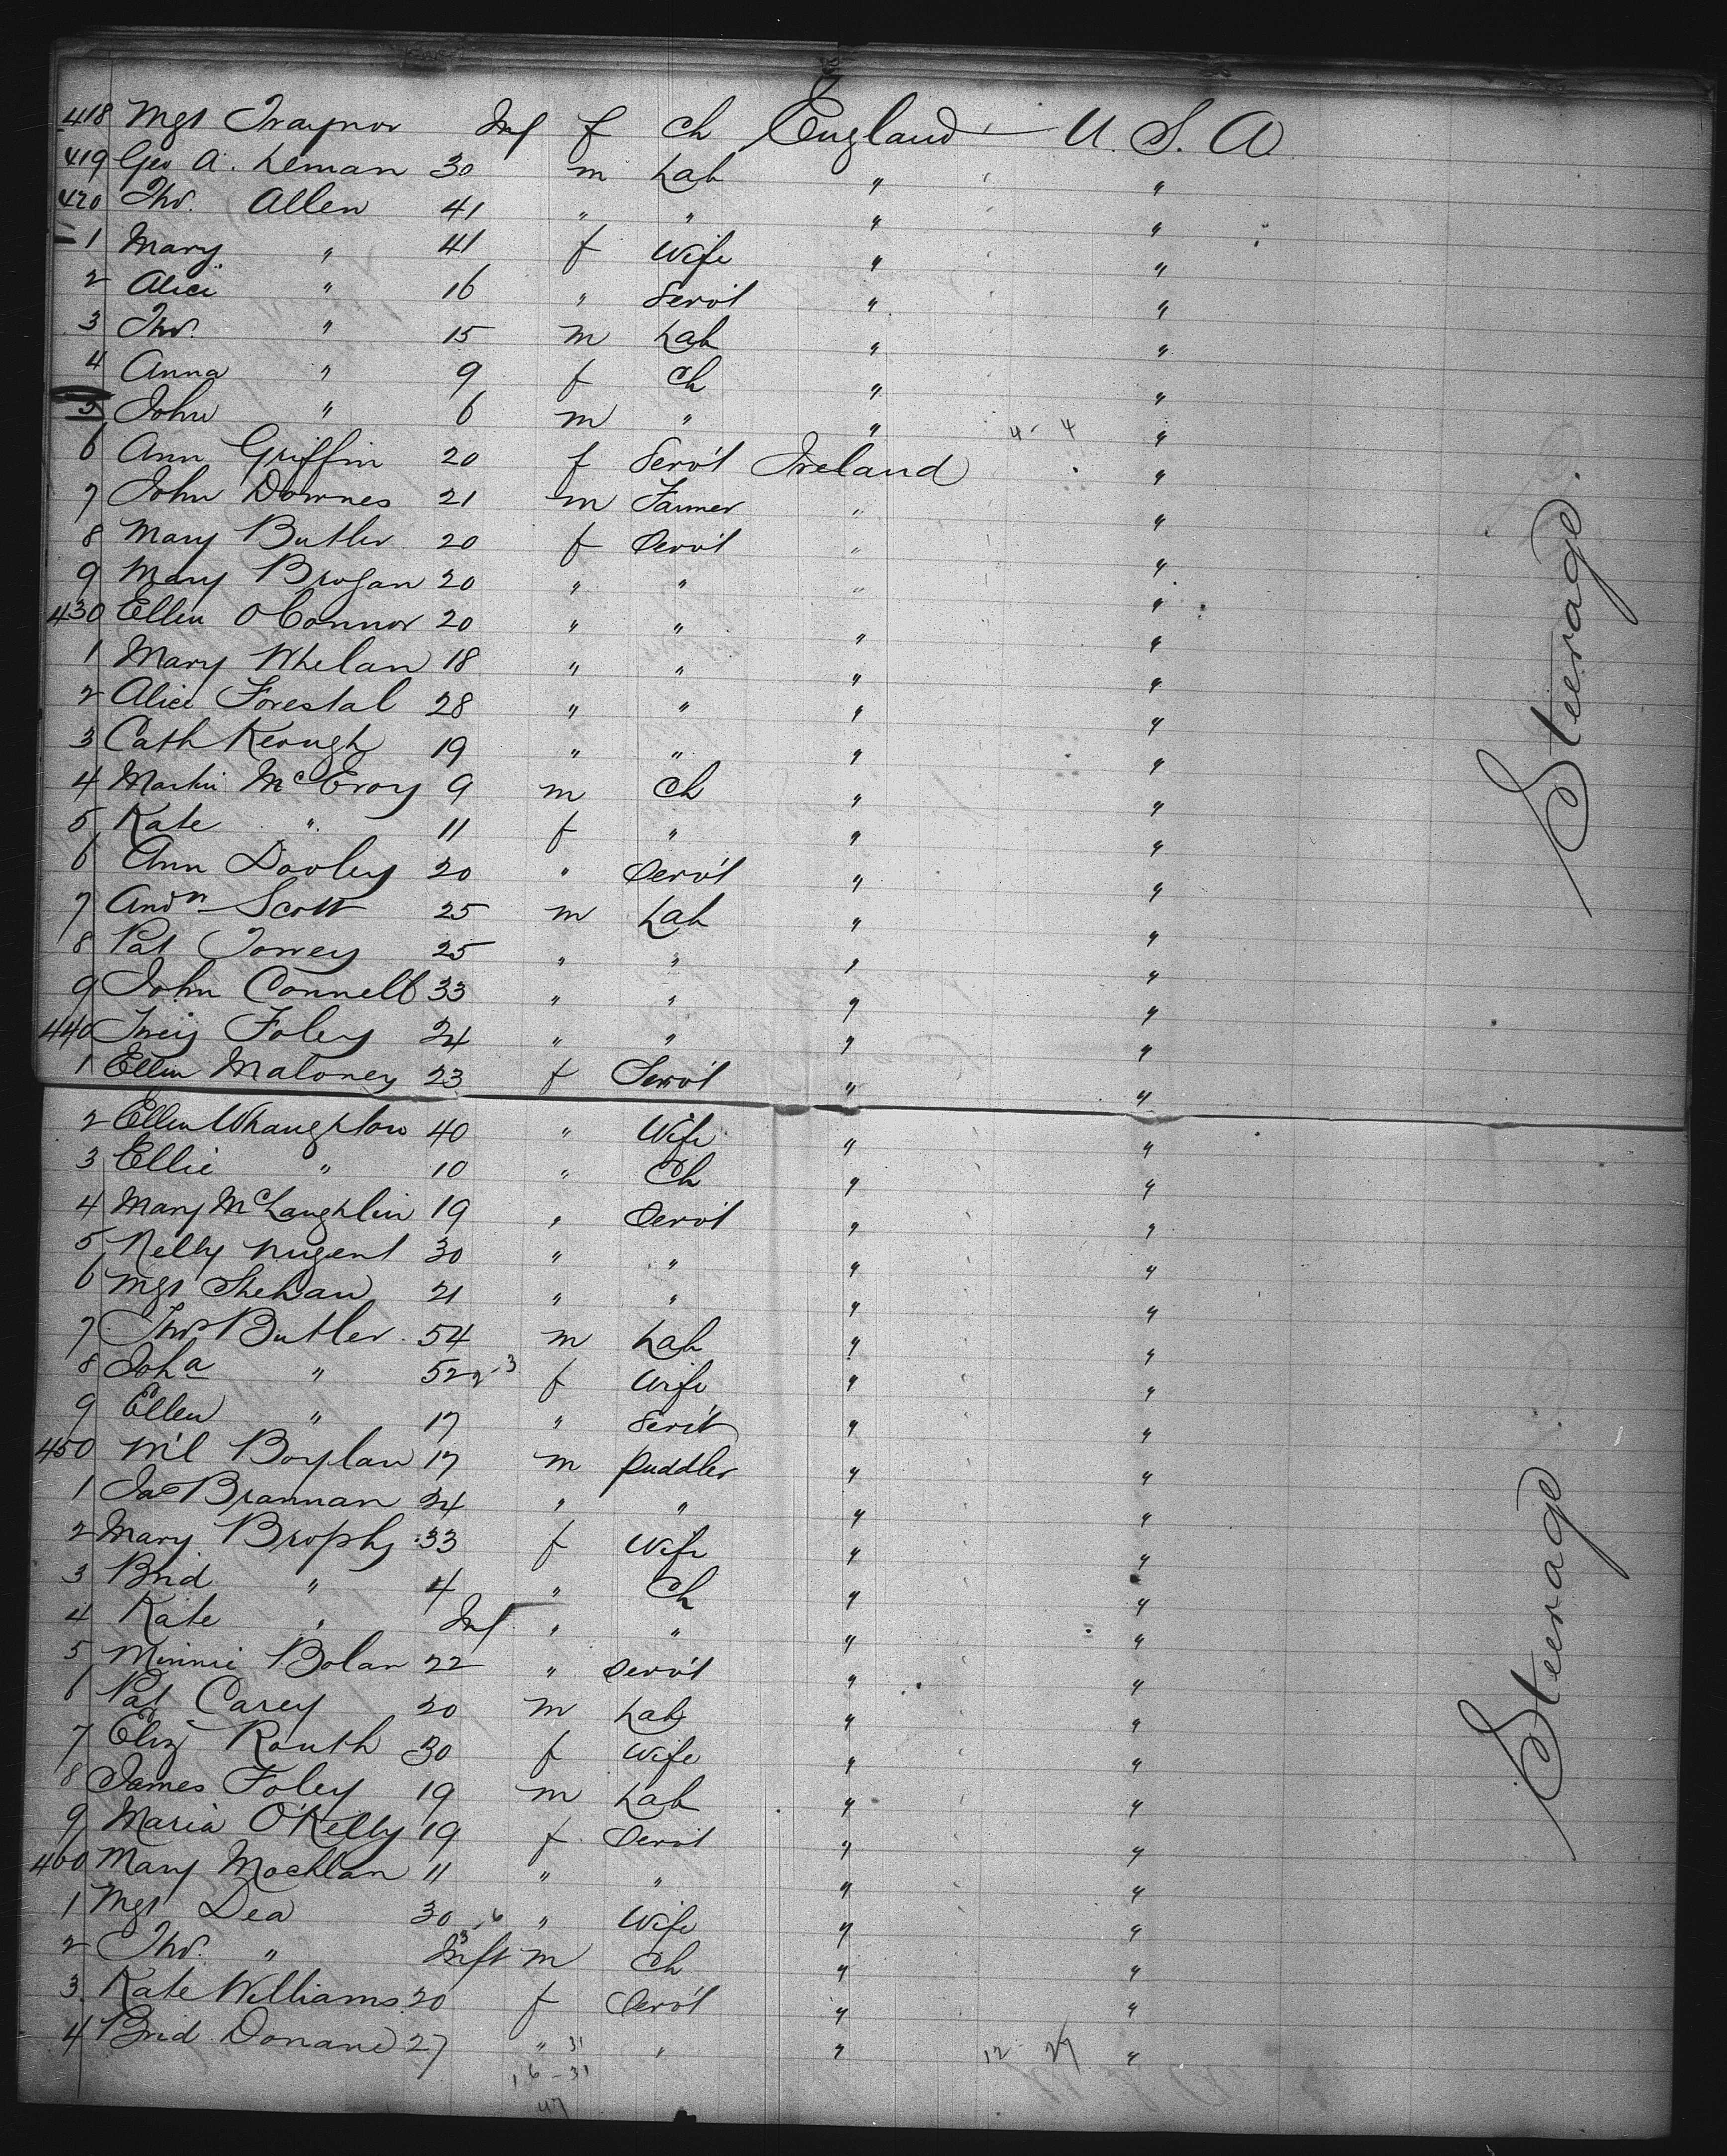 418 Mgt Traynor Inf f ch England U.S.A
419 Geo A. Leman 30 m Lab " "
420 Tho. Allen 41 " " " "
1 Mary " 41 f Wife " "
2 Alice " 16 " Serv't " "
3 Tho. " 15 m Lab " "
4 Anna " 9 f Ch " "
5 John " 6 m " " 4 - 4 "
6 Ann Griffin 20 f Serv't Ireland "
7 John Downes 21 m Farmer " "
8 Mary Butler 20 f Serv't " "
9 Mary Brogan 20 " " " "
430 Ellen O'Connor 20 " " " "
1 Mary Whelan 18 " " " "
2 Alice Forestal 28 " " " "
3 Cath Keough 19 " " " "
4 Martin McEvoy 9 m Ch " "
5 Kate " 11 f " " "
6 Ann Dooley 20 " Serv't " "
7 Andw Scott 25 m Lab " "
8 Pat Torrey 25 " " " "
9 John Connell 33 " " " "
440 Foley 24 " " " "
1 Ellen Maloney 23 f Serv't " "
2 Ellen Whaughton 40 " Wife " "
3 Ellie " 10 " Ch " "
4 Mary McLaughlin 19 " Serv't " "
5 Nelly Nugent 30 " " " "
6 Mgt Shehan 21 " " " "
7 Thos Butler 54 m Lab " "
8 Joha " 52 2-3 f Wife " "
9 Ellen " 17 " Serv't " "
450 M'l Boylan 17 m Puddler " "
1 Jas Brannan 24 " " " "
2 Mary Brophy 33 f Wife " "
3 Brid " 4 " Ch " "
4 Kate " Inf " " " "
5 Minnie Bolan 22 " Serv't " "
6 Pat Carey 20 m Lab " "
7 Eliz Routh 30 f Wife " "
8 James Foley 19 m Lab " "
9 Maria O'Kelly 19 f Serv't " "
460 Mary Mochlan 11 " " " "
1 Mgt Dea 30 6 " Wife " "
2 Tho. " Inft 3 m Ch " "
3 Kate Williams 20 f Serv't " "
4 Brid Donane 27 " 31 " " 12 - 27 "
16 - 31
47
Steerage.
Steerage